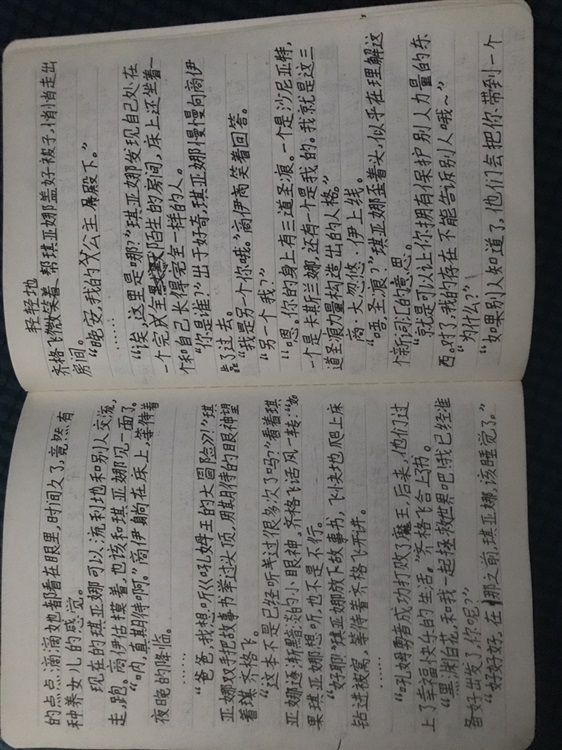 的点点滴滴她都看在眼里，时间久了，竟然有
种养女儿的感觉。
现在的琪亚娜可以流利地和别人交流，
走，跑。商伊估摸着，也该和琪亚娜见一面了。
“呐，真期待啊。”商伊躺在床上等待着
夜晚的降临。
……
“爸爸，我想听《吼姆王的大冒险》！”琪
亚娜双手把故事书举过头顶，用期待的眼神望
着琪齐格飞。
“这本不是已经听过很多次了吗？”看着琪
亚娜逐渐黯淡的小眼神，齐格飞话风一转：“如
果琪亚娜想听，也不是不行。
“好耶！”琪亚娜放下故事书，飞快地爬上床
钻进被窝，等待着齐格飞开讲。
……
“吼姆勇者成功打败了魔王，后来，他们过
上了幸福快乐的生活。”齐格飞合上书。
“黑渊白花，和我一起拯救世界吧！我已经准
备好出发了，你呢？”
“好好好，在那之前，琪亚娜，该睡觉了。”
轻轻地
齐格飞微笑着帮琪亚娜盖好被子，悄悄走出
房间。
“晚安，我的公主殿下。”
……
“诶，这里是哪？”琪亚娜发现自己处在
一个完全陌生的房间，床上还坐着一
个和自己长得完全一样的人。
“你是谁？”出于好奇，琪亚娜慢慢向商伊
靠了过去。
“我是另一个你哦。”商伊商笑着回答。
“另一个我？”
“嗯。你的身上有三道圣痕。一个是沙尼亚特，
一个是卡斯兰娜，还有一个是我的。我就是这三
道圣痕力量构造出的人格。”
商·大忽悠·伊上线。
“唔，圣痕？”琪亚娜歪着头，似乎在理解这
个新词汇的意思。
“就是可以让你拥有保护别人力量的东
西。对了，我的存在不能告诉别人哦～”
“为什么？”
“如果别人知道了，他们会把你带到一个